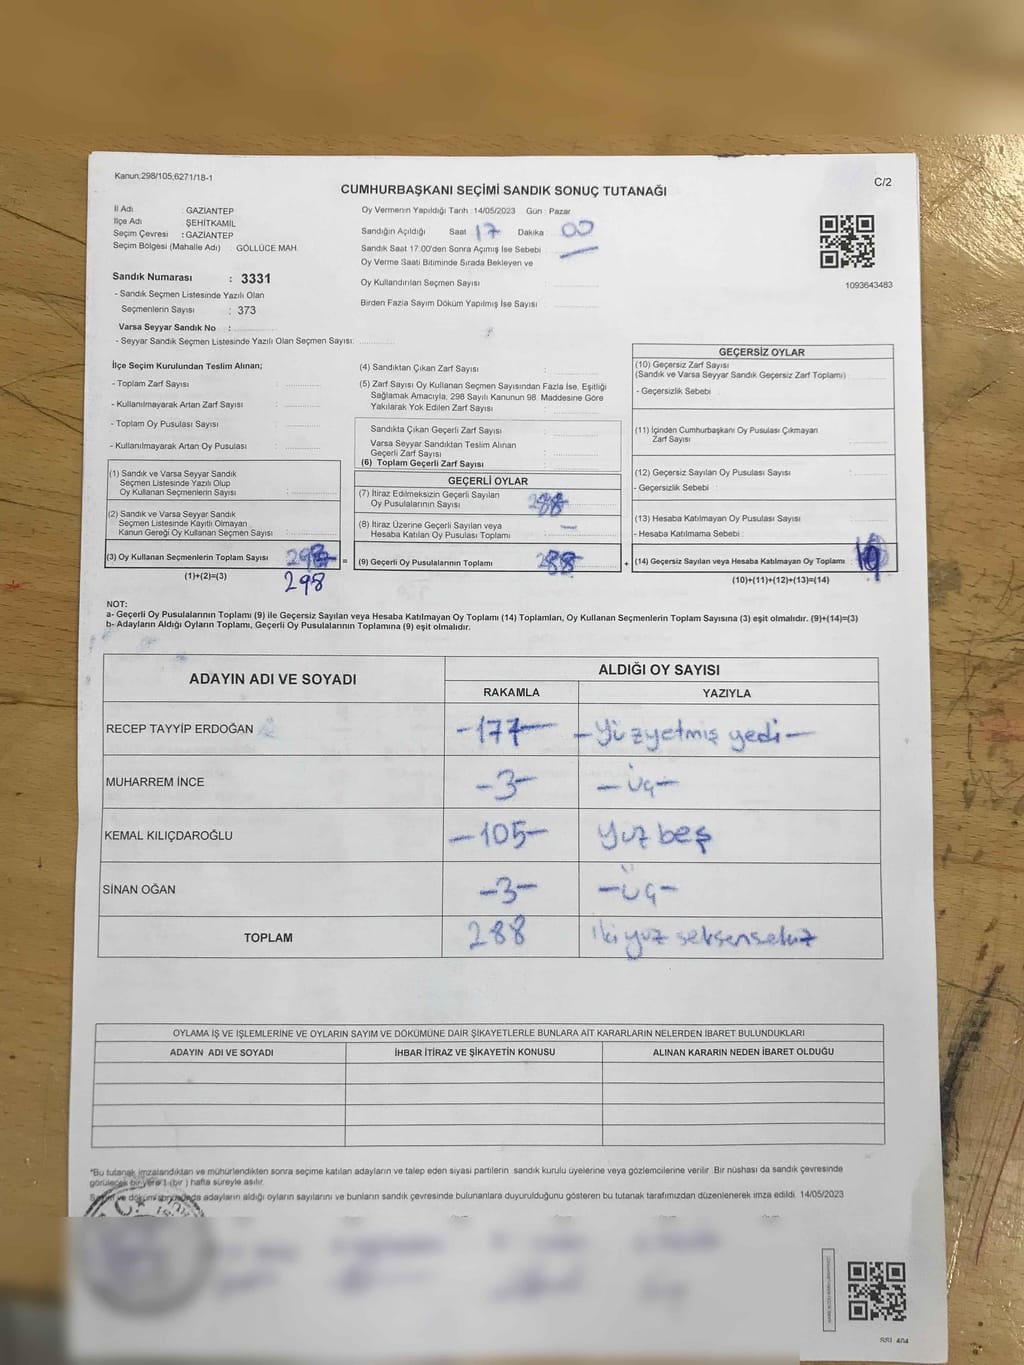 Kanun:298/105,6271/18-1
C/2
CUMHURBAŞKANI SEÇİMİ SANDIK SONUÇ TUTANAĞI
İl Adı : GAZİANTEP
İlçe Adı ŞEHİTKAMİL
Seçim Çevresi : GAZİANTEP
Seçim Bölgesi (Mahalle Adı) : GÖLLÜCE MAH.
Sandık Numarası : 3331
- Sandık Seçmen Listesinde Yazılı Olan
Seçmenlerin Sayısı : 373
Varsa Seyyar Sandık No :
- Seyyar Sandık Seçmen Listesinde Yazılı Olan Seçmen Sayısı:
Oy Vermenin Yapıldığı Tarih :14/05/2023 Gün : Pazar
Sandığın Açıldığı Saat 17 Dakika 00
Sandık Saat 17:00'den Sonra Açımış İse Sebebi
Oy Verme Saati Bitiminde Sırada Bekleyen ve
Oy Kullandırılan Seçmen Sayısı :
Birden Fazla Sayım Döküm Yapılmış İse Sayısı
1093643483
İlçe Seçim Kurulundan Teslim Alınan;
- Toplam Zarf Sayısı :
- Kullanılmayarak Artan Zarf Sayısı :
- Toplam Oy Pusulası Sayısı :
- Kullanılmayarak Artan Oy Pusulası :
(1) Sandık ve Varsa Seyyar Sandık
Seçmen Listesinde Yazılı Olup
Oy Kullanan Seçmenlerin Sayısı :
(2) Sandık ve Varsa Seyyar Sandık
Seçmen Listesinde Kayıtlı Olmayan
Kanun Gereği Oy Kullanan Seçmen Sayısı :
(3) Oy Kullanan Seçmenlerin Toplam Sayısı
(1)+(2)=(3) 298
(4) Sandıktan Çıkan Zarf Sayısı :
(5) Zarf Sayısı Oy Kullanan Seçmen Sayısından Fazla İse, Eşitliği
Sağlamak Amacıyla, 298 Sayılı Kanunun 98. Maddesine Göre
Yakılarak Yok Edilen Zarf Sayısı :
Sandıkta Çıkan Geçerli Zarf Sayısı :
Varsa Seyyar Sandıktan Teslim Alınan
Geçerli Zarf Sayısı :
(6) Toplam Geçerli Zarf Sayısı :
GEÇERLİ OYLAR
(7) İtiraz Edilmeksizin Geçerli Sayılan
Oy Pusulalarının Sayısı 288
(8) İtiraz Üzerine Geçerli Sayılan veya
Hesaba Katılan Oy Pusulası Toplamı
= (9) Geçerli Oy Pusulalarının Toplamı 288 +
GEÇERSİZ OYLAR
(10) Geçersiz Zarf Sayısı
(Sandık ve Varsa Seyyar Sandık Geçersiz Zarf Toplamı)
- Geçersizlik Sebebi
(11) İçinden Cumhurbaşkanı Oy Pusulası Çıkmayan
Zarf Sayısı
(12) Geçersiz Sayılan Oy Pusulası Sayısı
- Geçersizlik Sebebi
(13) Hesaba Katılmayan Oy Pusulası Sayısı
- Hesaba Katılmama Sebebi
(14) Geçersiz Sayılan veya Hesaba Katılmayan Oy Toplamı :
(10)+(11)+(12)+(13)=(14)
NOT:
a- Geçerli Oy Pusulalarının Toplamı (9) ile Geçersiz Sayılan veya Hesaba Katılmayan Oy Toplamı (14) Toplamları, Oy Kullanan Seçmenlerin Toplam Sayısına (3) eşit olmalıdır. (9)+(14)=(3)
b- Adayların Aldığı Oyların Toplamı, Geçerli Oy Pusulalarının Toplamına (9) eşit olmalıdır.
ADAYIN ADI VE SOYADI
ALDIĞI OY SAYISI
RAKAMLA YAZIYLA
RECEP TAYYİP ERDOĞAN -177- -Yüzyetmiş yedi-
MUHARREM İNCE -3- -üç-
KEMAL KILIÇDAROĞLU -105- yuz beş
SİNAN OĞAN -3- -üç-
TOPLAM 288 iki yuz seksensekız
OYLAMA İŞ VE İŞLEMLERİNE VE OYLARIN SAYIM VE DÖKÜMÜNE DAİR ŞİKAYETLERLE BUNLARA AİT KARARLARIN NELERDEN İBARET BULUNDUKLARI
ADAYIN ADI VE SOYADI İHBAR İTİRAZ VE ŞİKAYETİN KONUSU ALINAN KARARIN NEDEN İBARET OLDUĞU
*Bu tutanak imzalandıktan ve mühürlendikten sonra seçime katılan adayların ve talep eden siyasi partilerin sandık kurulu üyelerine veya gözlemcilerine verilir. Bir nüshası da sandık çevresinde
görülecek bir yere 1 (bir ) hafta süreyle asılır.
ve dökümü adayların aldığı oyların sayılarını ve bunların sandık çevresinde bulunanlara duyurulduğunu gösteren bu tutanak tarafımızdan düzenlenerek imza edildi. 14/05/2023